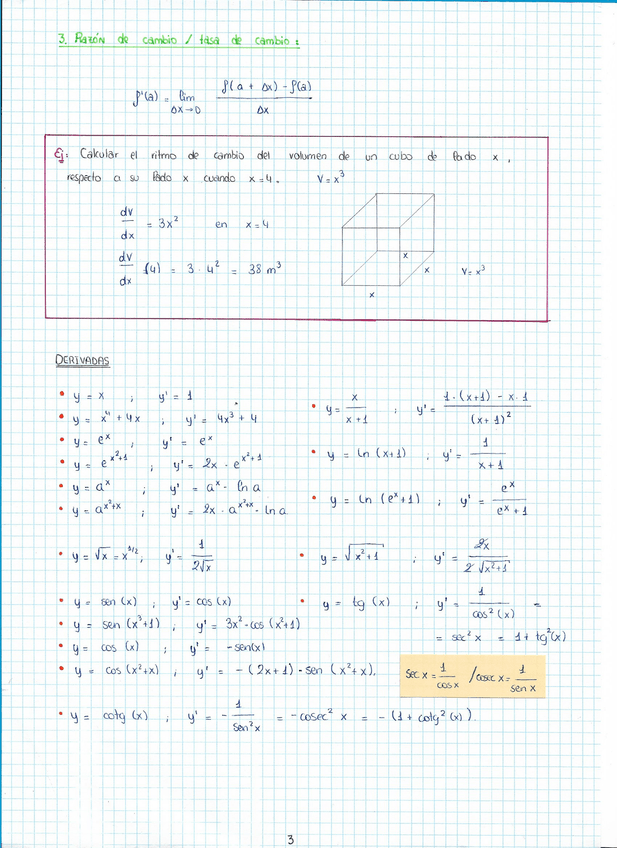 3. Razón de cambio / tasa de cambio:
f'(a) = lim Δx→0 f(a + Δx) - f(a) / Δx
Ej: Calcular el ritmo de cambio del volumen de un cubo de lado x,
respecto a su lado x cuando x=4. V=x³
dv/dx = 3x² en x=4
dv/dx (4) = 3 · 4² = 38 m³
x
x
x
V=x³
DERIVADAS
• y = x ; y' = 1
• y = x⁴ + 4x ; y' = 4x³ + 4
• y = eˣ ; y' = eˣ
• y = e^(x²+1) ; y' = 2x · e^(x²+1)
• y = aˣ ; y' = aˣ · ln a
• y = a^(x²+x) ; y' = 2x · a^(x²+x) · ln a
• y = x/(x+1) ; y' = (1·(x+1) - x·1)/(x+1)²
• y = ln (x+1) ; y' = 1/(x+1)
• y = ln (eˣ+1) ; y' = eˣ/(eˣ+1)
• y = √x = x^(1/2) ; y' = 1/(2√x)
• y = √(x²+1) ; y' = 2x/(2√(x²+1))
• y = sen (x) ; y' = cos (x)
• y = sen (x³+1) ; y' = 3x² · cos (x³+1)
• y = cos (x) ; y' = -sen(x)
• y = cos (x²+x) ; y' = -(2x+1) · sen (x²+x).
• y = tg (x) ; y' = 1/cos²(x) =
= sec² x = 1 + tg²(x)
sec x = 1/cos x / cosec x = 1/sen x
• y = cotg (x) ; y' = - 1/sen²x = -cosec² x = -(1 + cotg²(x)).
3